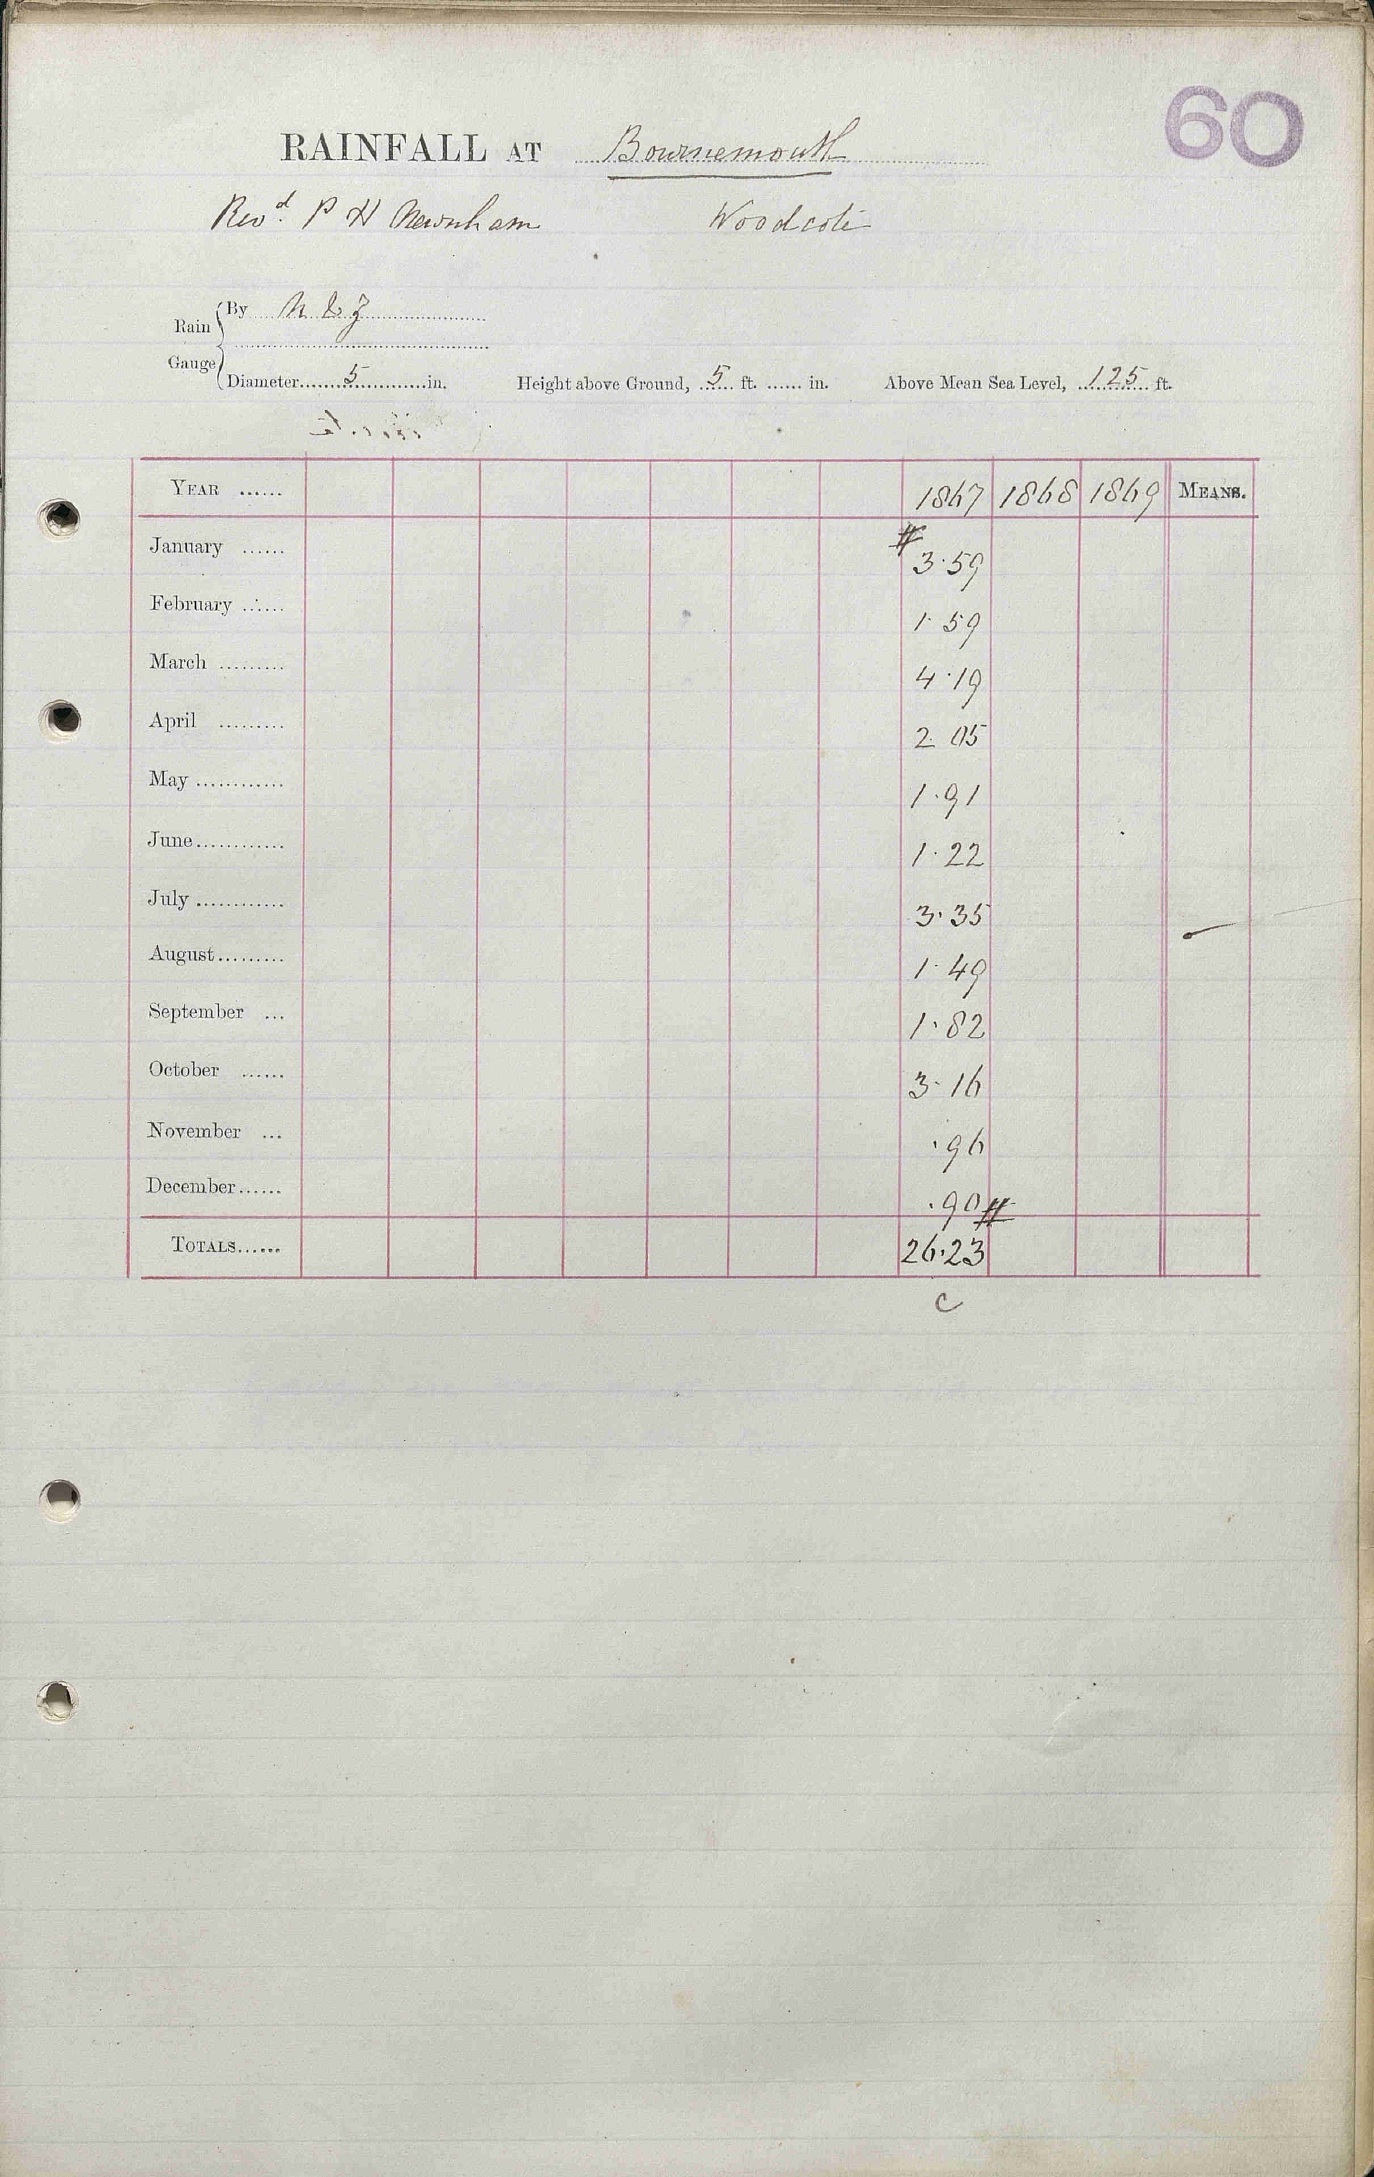 60
RAINFALL AT Bournemouth
Revd. P H Newnham Woodcote
Rain Gauge
By N & Z
Diameter 5 in. Height above Ground, 5 ft. ...... in. Above Mean Sea Level, 125 ft.
YEAR ...... 1867 1868 1869 MEANS.
January ...... # 3.59
February ...... 1.59
March ......... 4.19
April ......... 2.05
May ............ 1.91
June ............ 1.22
July ............ 3.35
August ......... 1.49
September ... 1.82
October ...... 3.16
November ... .96
December ...... .90 #
TOTALS ...... 26.23
C